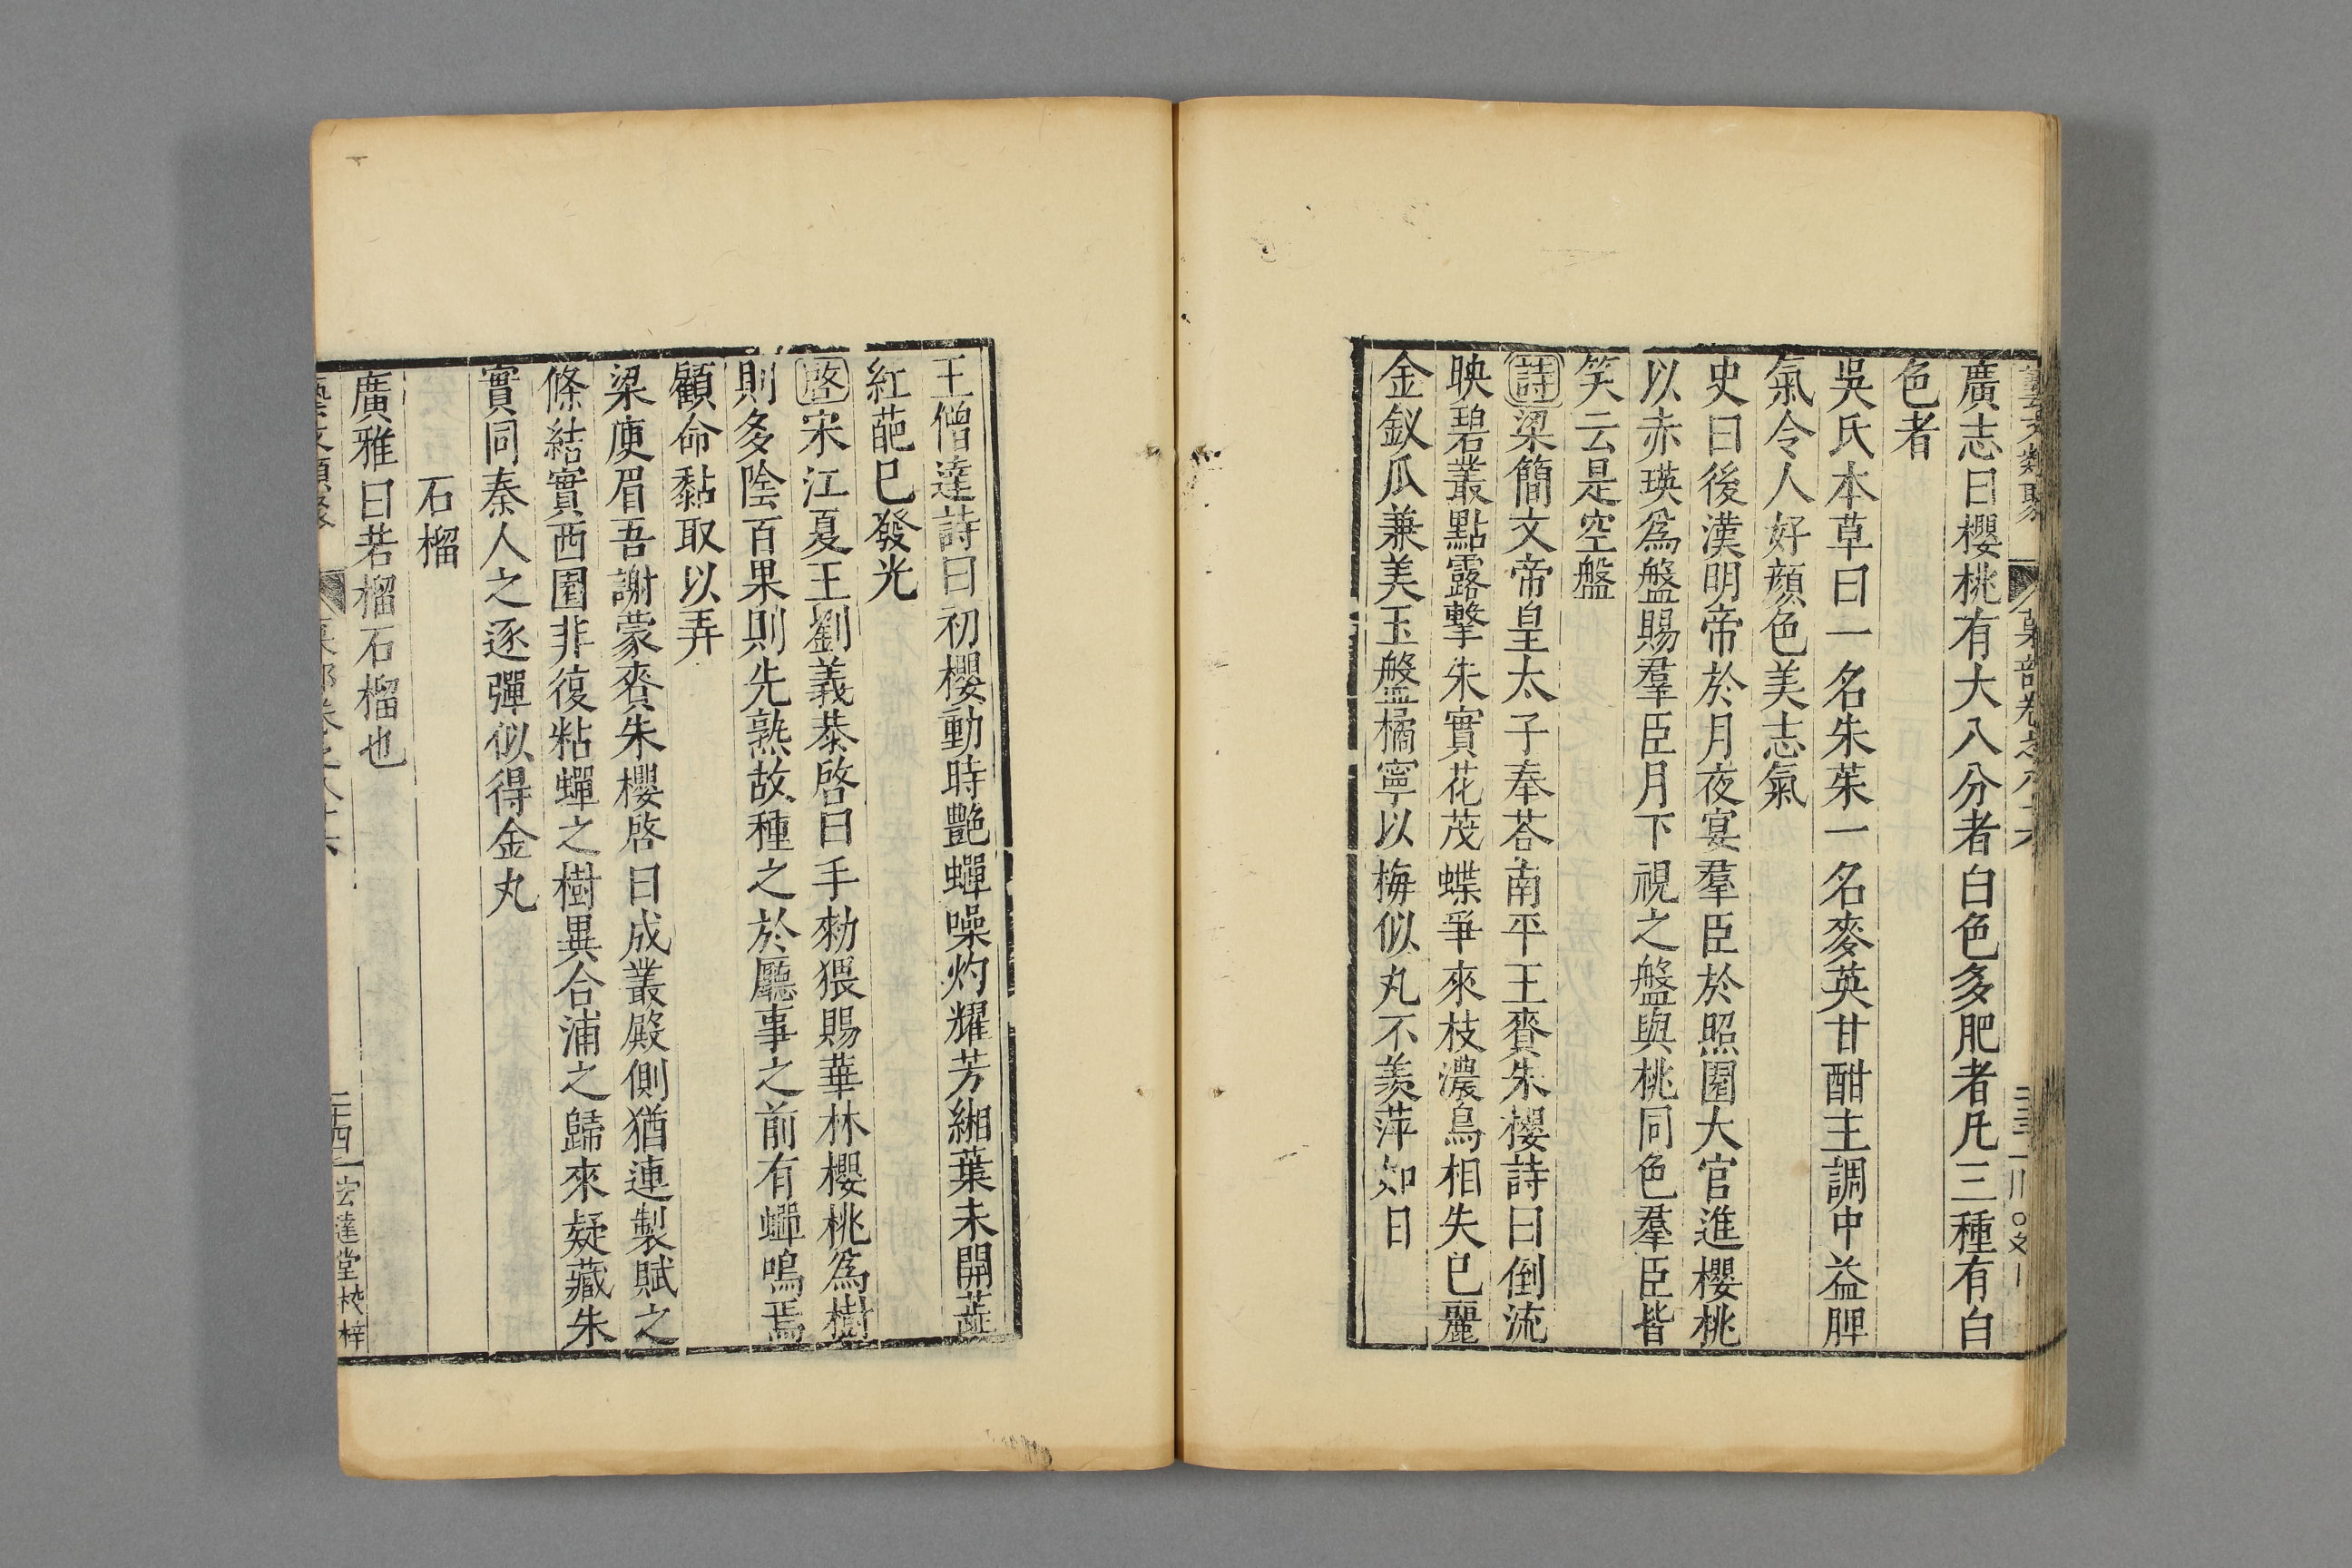 廣志曰櫻桃有大八分者白色多肥者凡三種有白
色者
吳氏本草曰一名朱茱一名麥英甘酣主調中益脾
氣令人好顏色美志氣
史曰後漢明帝於月夜宴羣臣於照園大官進櫻桃
以赤瑛為盤賜羣臣月下視之盤與桃同色羣臣皆
笑云是空盤
詩梁簡文帝皇太子奉荅南平王賚朱櫻詩曰倒流
映碧叢點露擎朱實花茂蝶爭來枝濃鳥相失已麗
金釵瓜兼美玉盤橘寧以梅似丸不羨萍如日
王僧達詩曰初櫻動時艷蟬噪灼耀芳緗葉未開蘂
紅葩已發光
啓宋江夏王劉義恭啓曰手勑猥賜華林櫻桃為樹
則多陰百果則先熟故種之於廳事之前有蟬鳴焉
顧命黏取以弄
梁庾眉吾謝蒙賚朱櫻啓曰成叢殿側猶連製賦之
條結實西園非復粘蟬之樹異合浦之歸來疑藏朱
實同秦人之逐彈似得金丸
石榴
廣雅曰若榴石榴也
藝文類聚
二十四
宏達堂校梓